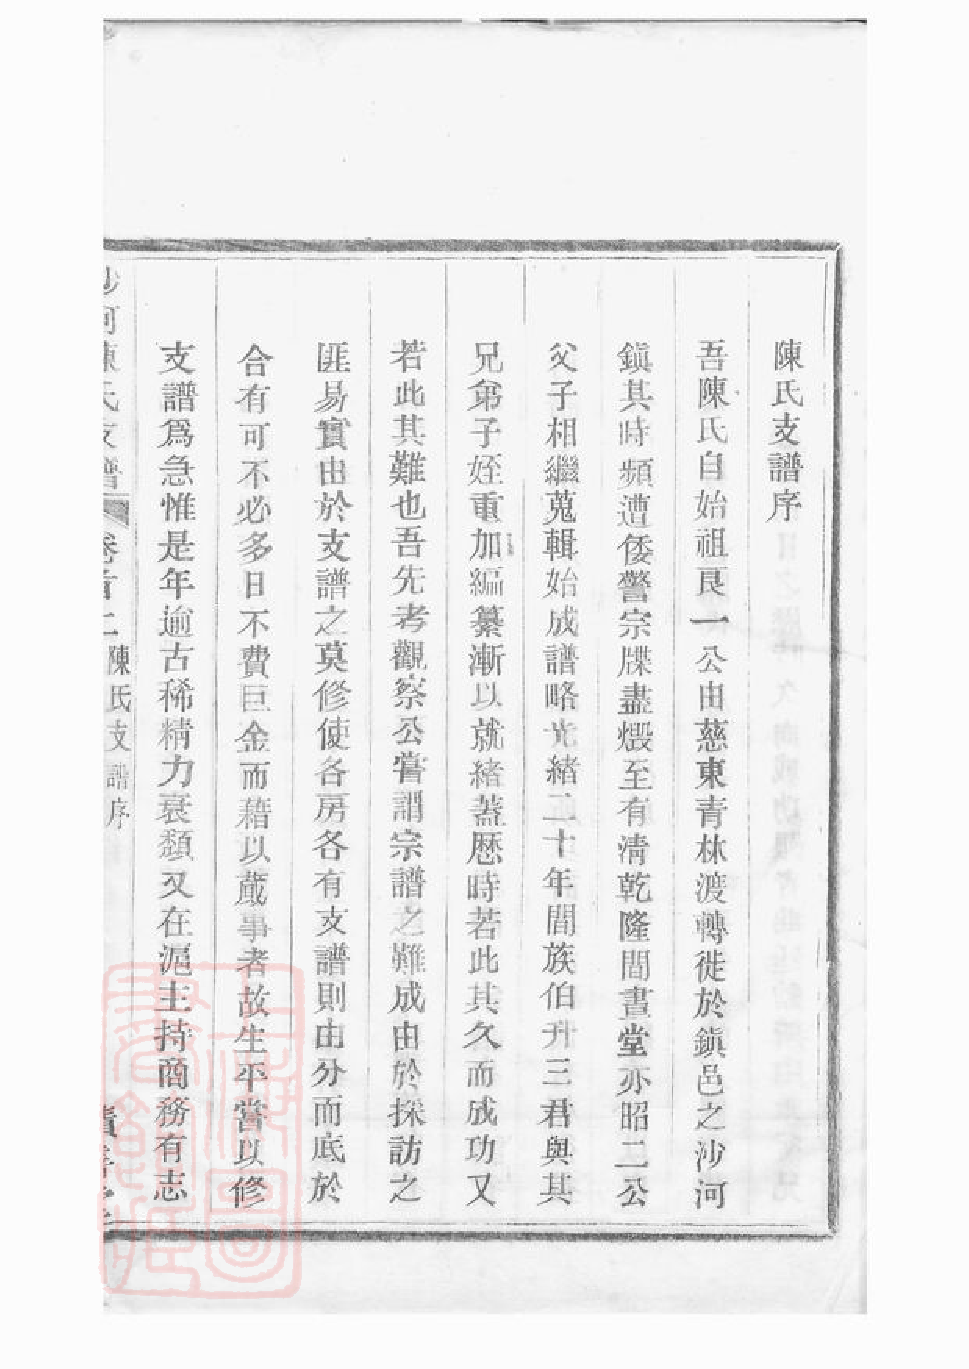 陳氏支譜序
吾陳氏自始祖艮一公由慈東青林渡轉徙於鎭邑之沙河
鎭其時頻遭倭警宗牒盡燬至有淸乾隆間晝堂亦昭二公
父子相繼蒐輯始成譜略光緒二十年間族伯升三君與其
兄弟子姪重加編纂漸以就緒蓋歷時若此其久而成功又
若此其難也吾先考觀察公嘗謂宗譜之難成由於採訪之
匪易實由於支譜之莫修使各房各有支譜則由分而底於
合有可不必多日不費巨金而藉以蕆事者故生平嘗以修
支譜爲急惟是年逾古稀精力衰頽又在滬主持商務有志
沙河陳氏支譜 卷首上 陳氏支譜序